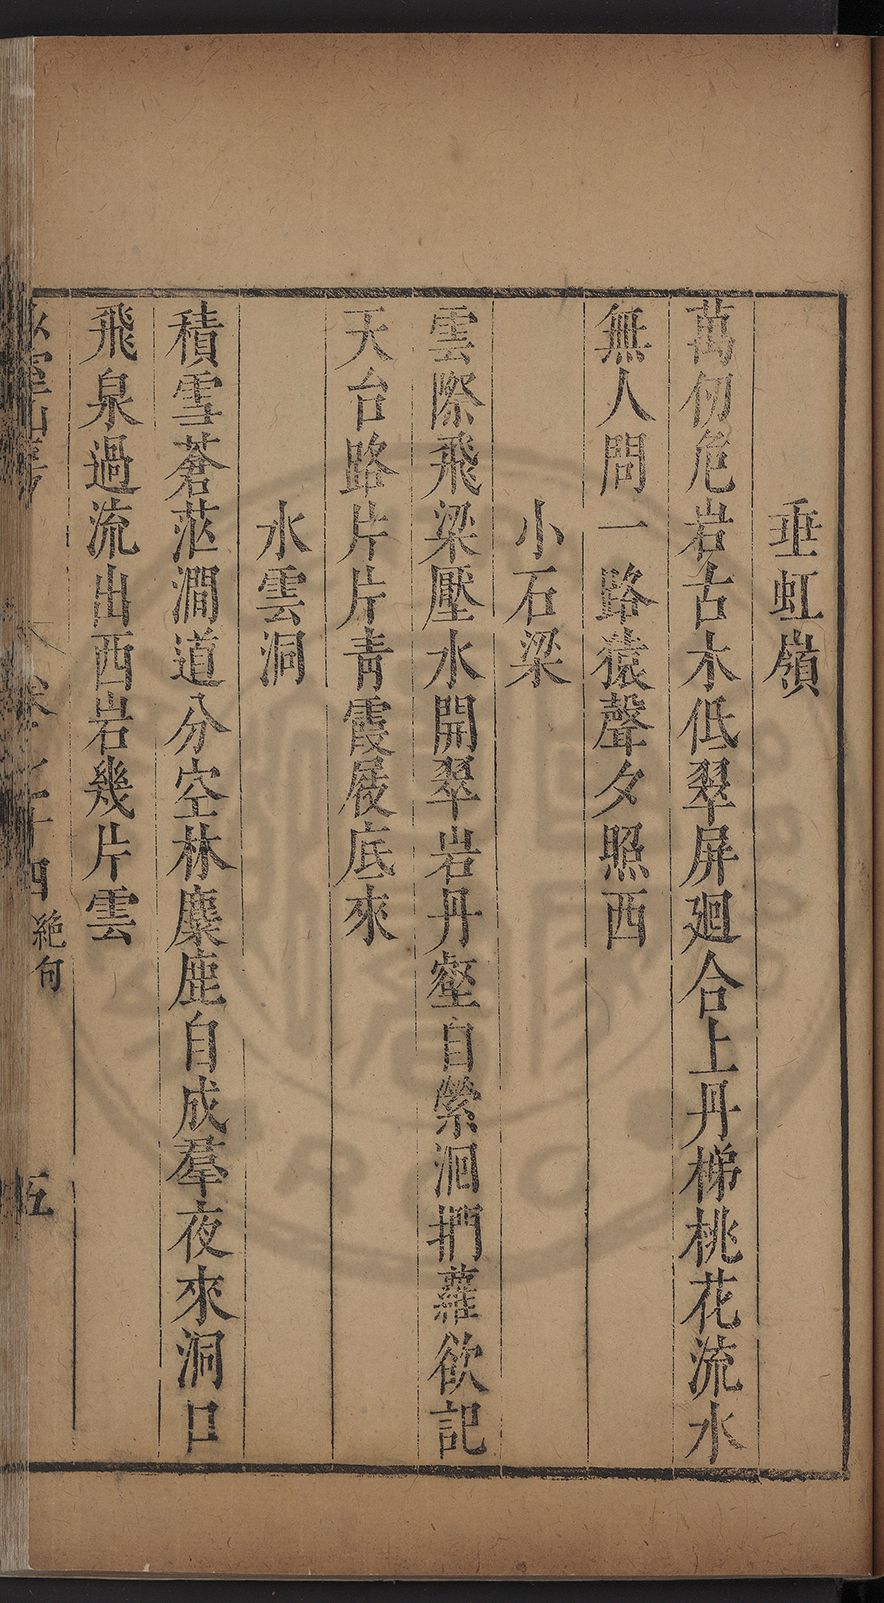 垂虹嶺
萬仞危岩古木低翠屏廻合上丹梯桃花流水
無人問一路猿聲夕照西
小石梁
雲際飛梁壓水開翠岩丹壑自縈洄捫蘿欲記
天台路片片靑霞屐底來
水雲洞
積雪蒼茫澗道分空林麋鹿自成羣夜來洞口
飛泉過流出西岩幾片雲
卷之二十四 絶句 五